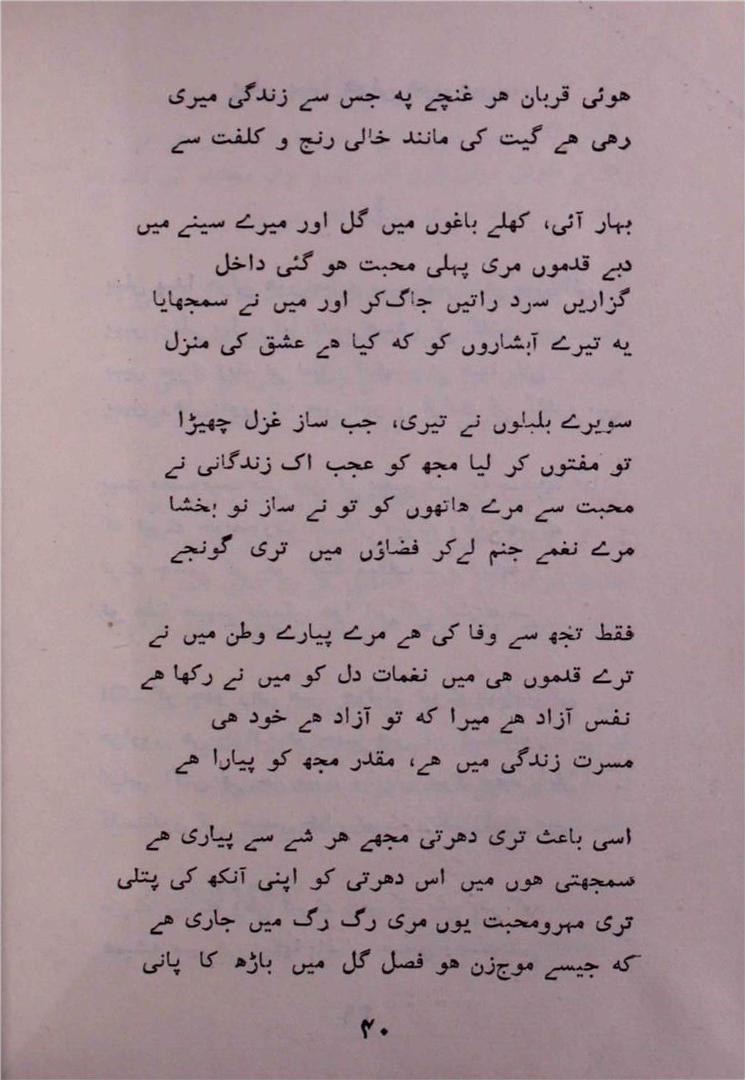 هوئی قربان هر غنچے په جس سے زندگی میری
رهی هے گیت کی مانند خالی رنج و کلفت سے
بہار آئی، کھلے باغوں میں گل اور میرے سینے میں
دبے قدموں مری پہلی محبت هو گئی داخل
گزاریں سرد راتیں جاگ کر اور میں نے سمجھایا
یه تیرے آبشاروں کو که کیا هے عشق کی منزل
سویرے بلبلوں نے تیری، جب ساز غزل چھیڑا
تو مفتوں کر لیا مجھ کو عجب اک زندگانی نے
محبت سے مرے هاتھوں کو تو نے ساز نو بخشا
مرے نغمے جنم لے کر فضاؤں میں تری گونجے
فقط تجھ سے وفا کی هے مرے پیارے وطن میں نے
ترے قدموں هی میں نغمات دل کو میں نے رکھا هے
نفس آزاد هے میرا که تو آزاد هے خود هی
مسرت زندگی میں هے، مقدر مجھ کو پیارا هے
اسی باعث تری دھرتی مجھے هر شے سے پیاری هے
سمجھتی هوں میں اس دھرتی کو اپنی آنکھ کی پتلی
تری مہرو محبت یوں مری رگ رگ میں جاری هے
که جیسے موج زن هو فصل گل میں باڑھ کا پانی
۴۰